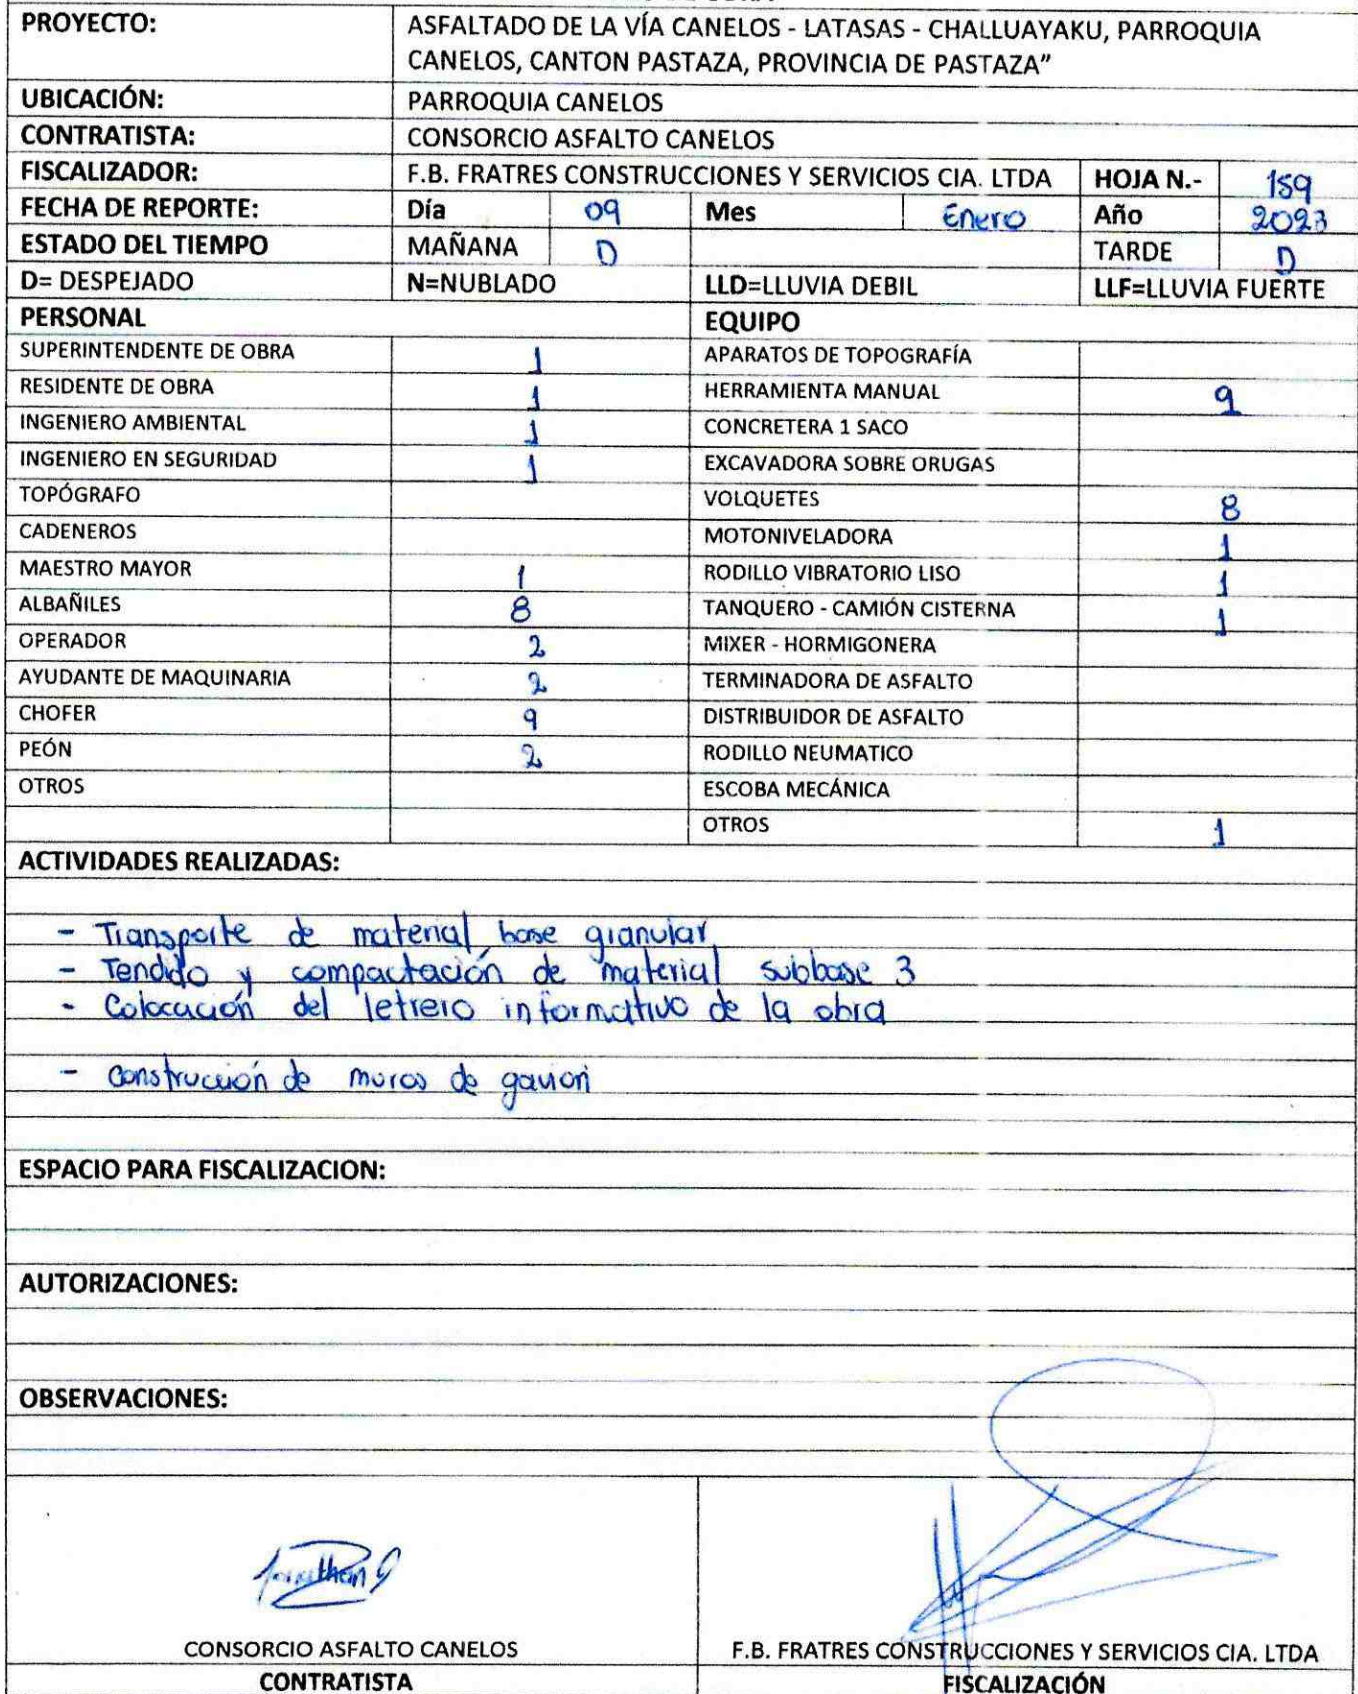 PROYECTO: ASFALTADO DE LA VÍA CANELOS - LATASAS - CHALLUAYAKU, PARROQUIA
CANELOS, CANTON PASTAZA, PROVINCIA DE PASTAZA”
UBICACIÓN: PARROQUIA CANELOS
CONTRATISTA: CONSORCIO ASFALTO CANELOS
FISCALIZADOR: F.B. FRATRES CONSTRUCCIONES Y SERVICIOS CIA. LTDA HOJA N.- 159
FECHA DE REPORTE: Día 09 Mes Enero Año 2023
ESTADO DEL TIEMPO MAÑANA D TARDE D
D= DESPEJADO N=NUBLADO LLD=LLUVIA DEBIL LLF=LLUVIA FUERTE
PERSONAL EQUIPO
SUPERINTENDENTE DE OBRA 1 APARATOS DE TOPOGRAFÍA
RESIDENTE DE OBRA 1 HERRAMIENTA MANUAL 9
INGENIERO AMBIENTAL 1 CONCRETERA 1 SACO
INGENIERO EN SEGURIDAD 1 EXCAVADORA SOBRE ORUGAS
TOPÓGRAFO VOLQUETES 8
CADENEROS MOTONIVELADORA 1
MAESTRO MAYOR 1 RODILLO VIBRATORIO LISO 1
ALBAÑILES 8 TANQUERO - CAMIÓN CISTERNA 1
OPERADOR 2 MIXER - HORMIGONERA
AYUDANTE DE MAQUINARIA 2 TERMINADORA DE ASFALTO
CHOFER 9 DISTRIBUIDOR DE ASFALTO
PEÓN 2 RODILLO NEUMATICO
OTROS ESCOBA MECÁNICA
OTROS 1
ACTIVIDADES REALIZADAS:
- Transporte de material base granular
- Tendido y compactación de material subbase 3
- Colocación del letrero informativo de la obra
- Construcción de muros de gavion
ESPACIO PARA FISCALIZACION:
AUTORIZACIONES:
OBSERVACIONES:
CONSORCIO ASFALTO CANELOS F.B. FRATRES CONSTRUCCIONES Y SERVICIOS CIA. LTDA
CONTRATISTA FISCALIZACIÓN